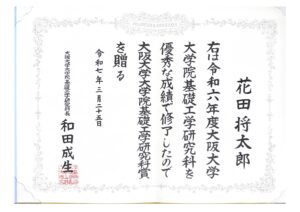 花田将太郎
右は令和六年度大阪大学
大学院基礎工学研究科を
優秀な成績で修了したので
大阪大学大学院基礎工学研究科賞
を贈る
令和七年三月二十五日
大阪大学大学院基礎工学研究科長
和田成生